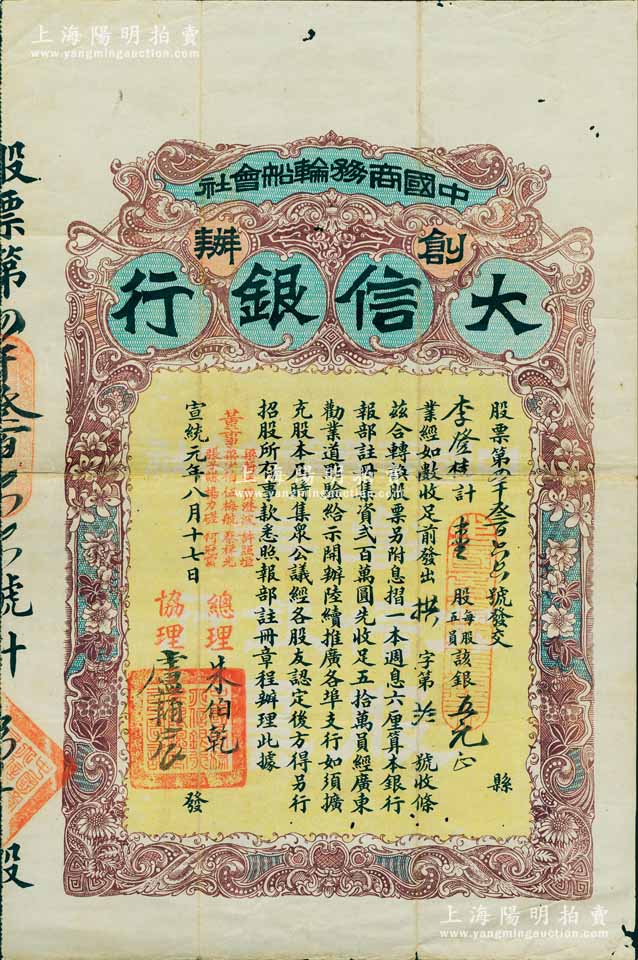 上海陽明拍賣
www.yangmingauction.com
中國商務輪船會社
創辦
大信銀行
股票第四千叁百號發交
縣
李發桂計壹股每股五員該銀五元正
業經如數收足前發出拱字第號收條
茲合轉換股票另附息摺一本週息六厘算本銀行
報部註册集資弍百萬圓先收足五拾萬員經廣東
勸業道明驗給示開辦陸續推廣各埠支行如須擴
充股本應集衆公議經各股友認定後方得另行
招股所有事款悉照報部註册章程辦理此據
董事
宣統元年八月十七日
發
總理朱伯乾
協理盧輔宸
股票第四千叁百號計
股
上海陽明拍賣
www.yangmingauction.com